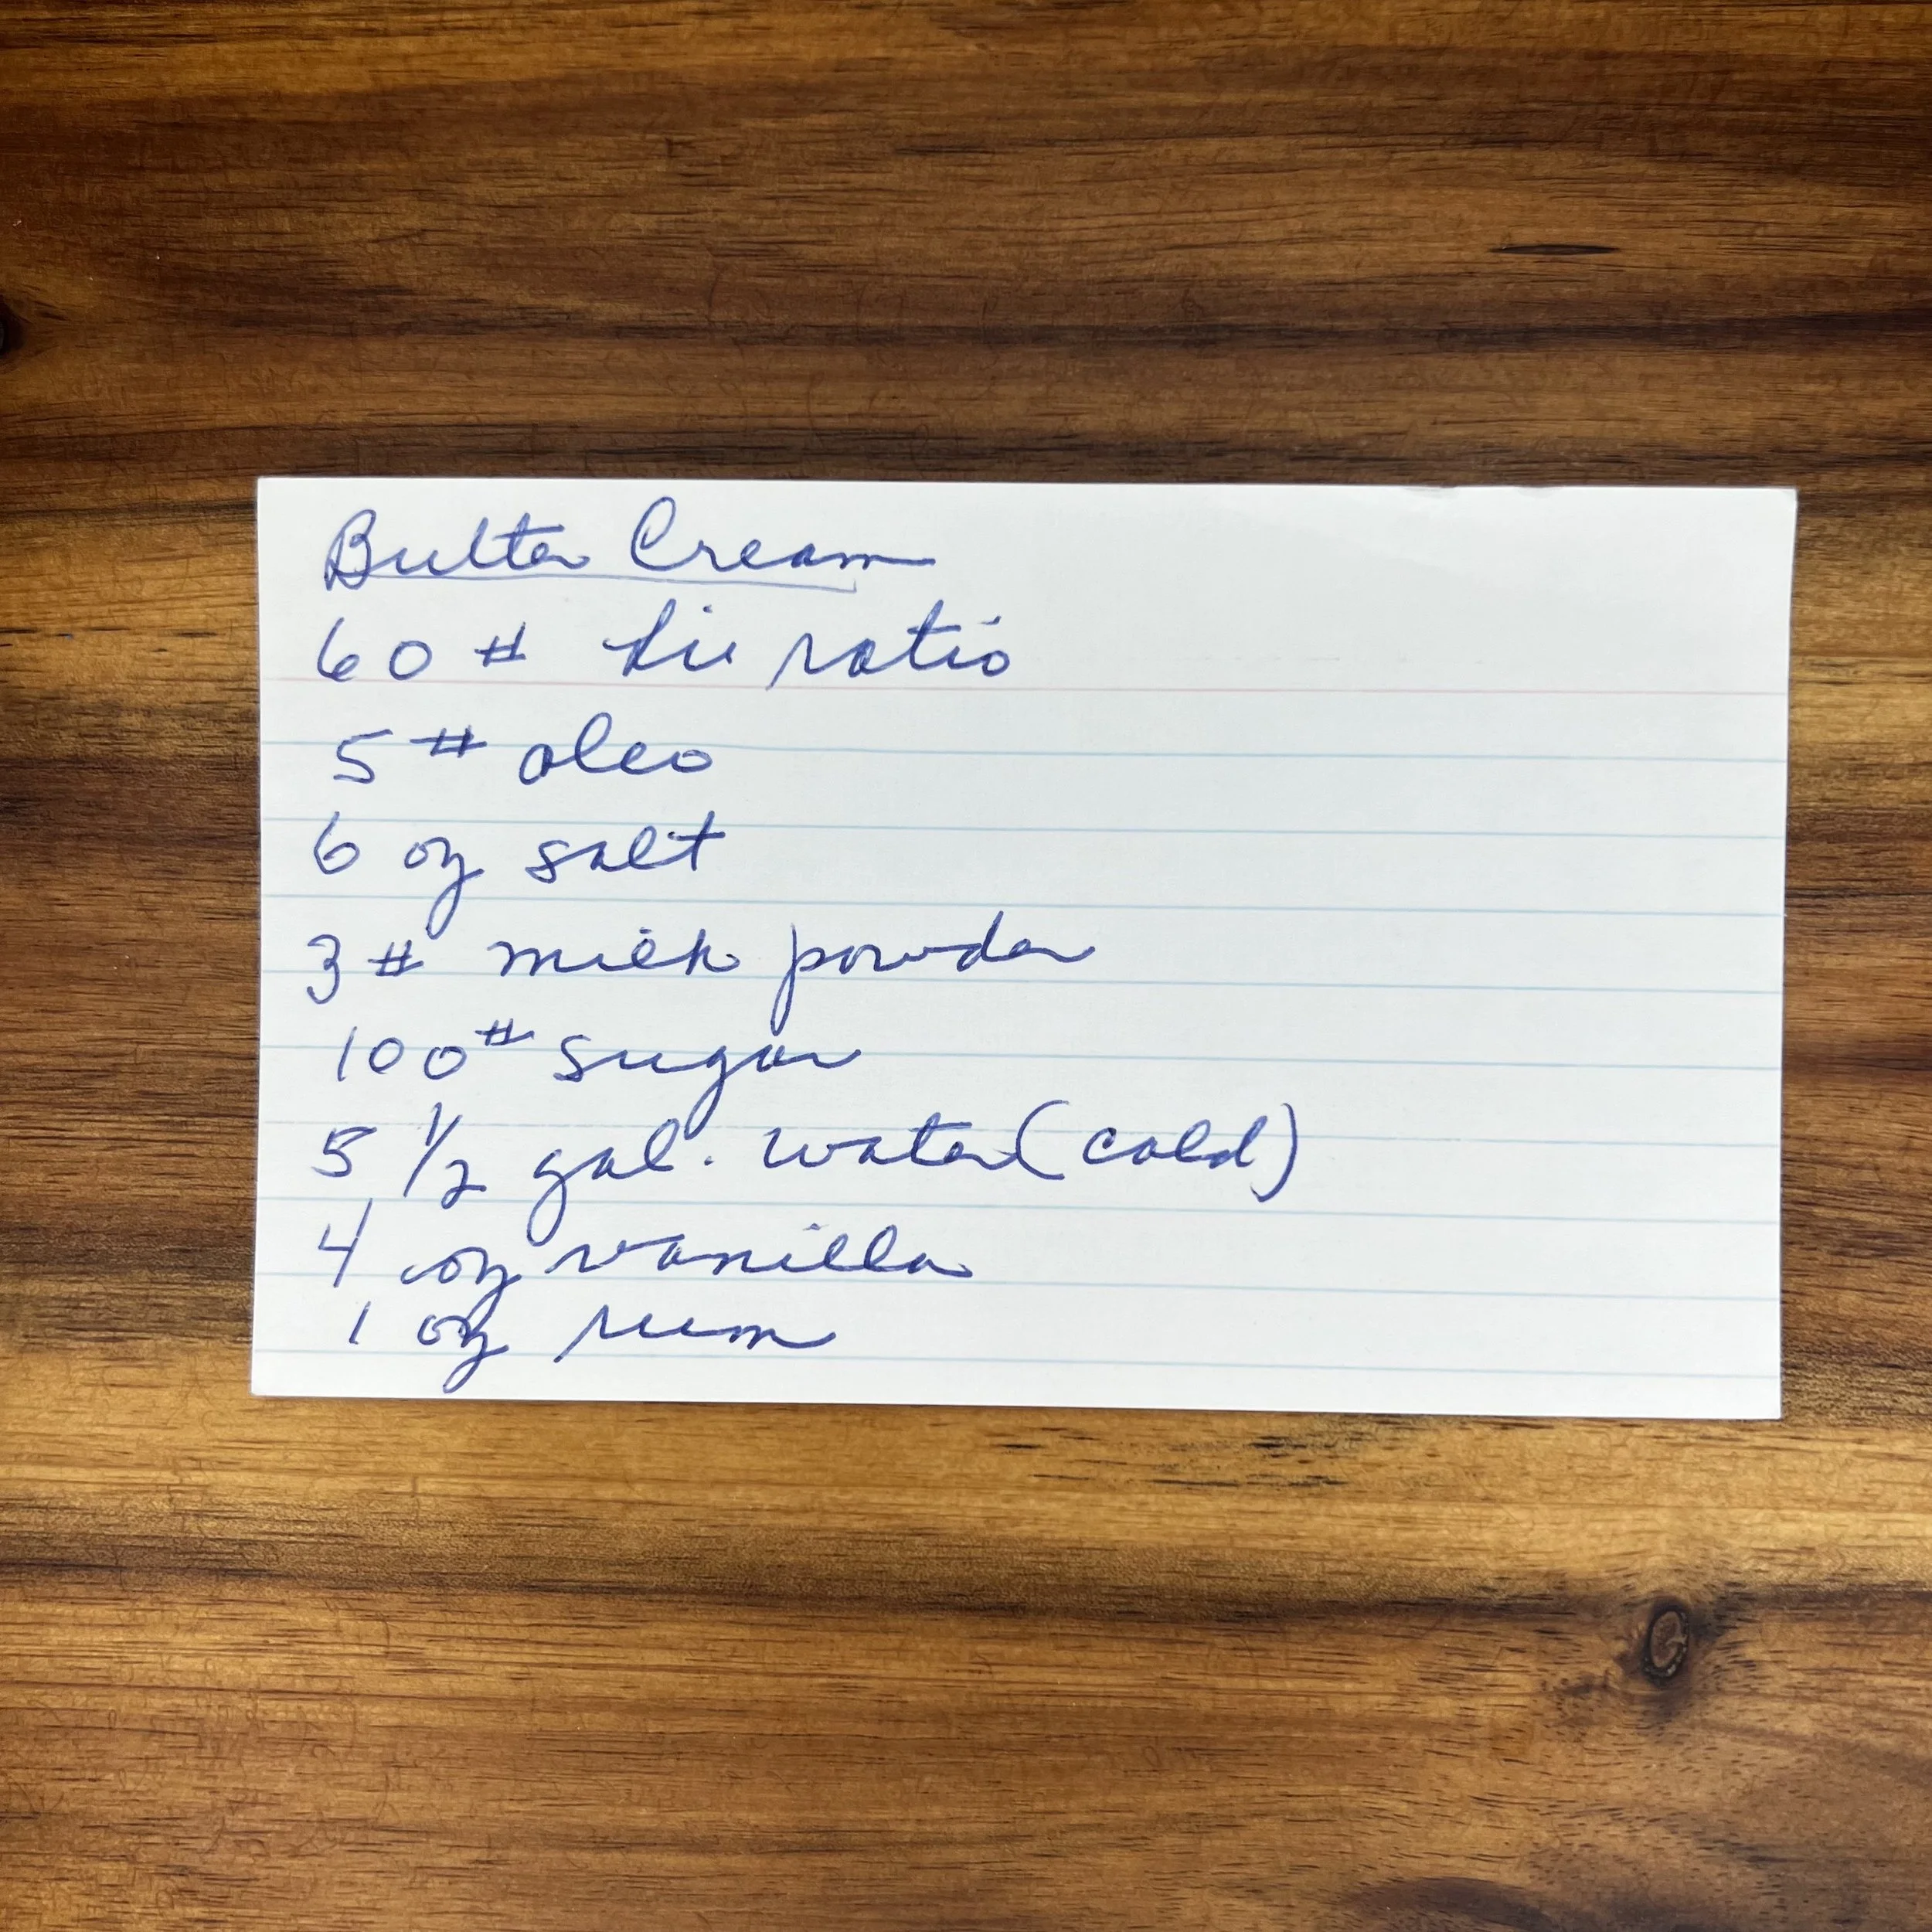 Butter Cream
60 # hi ratio
5 # oleo
6 oz salt
3 # milk powder
100 # sugar
5 1/2 gal. water (cold)
4 oz vanilla
1 oz rum